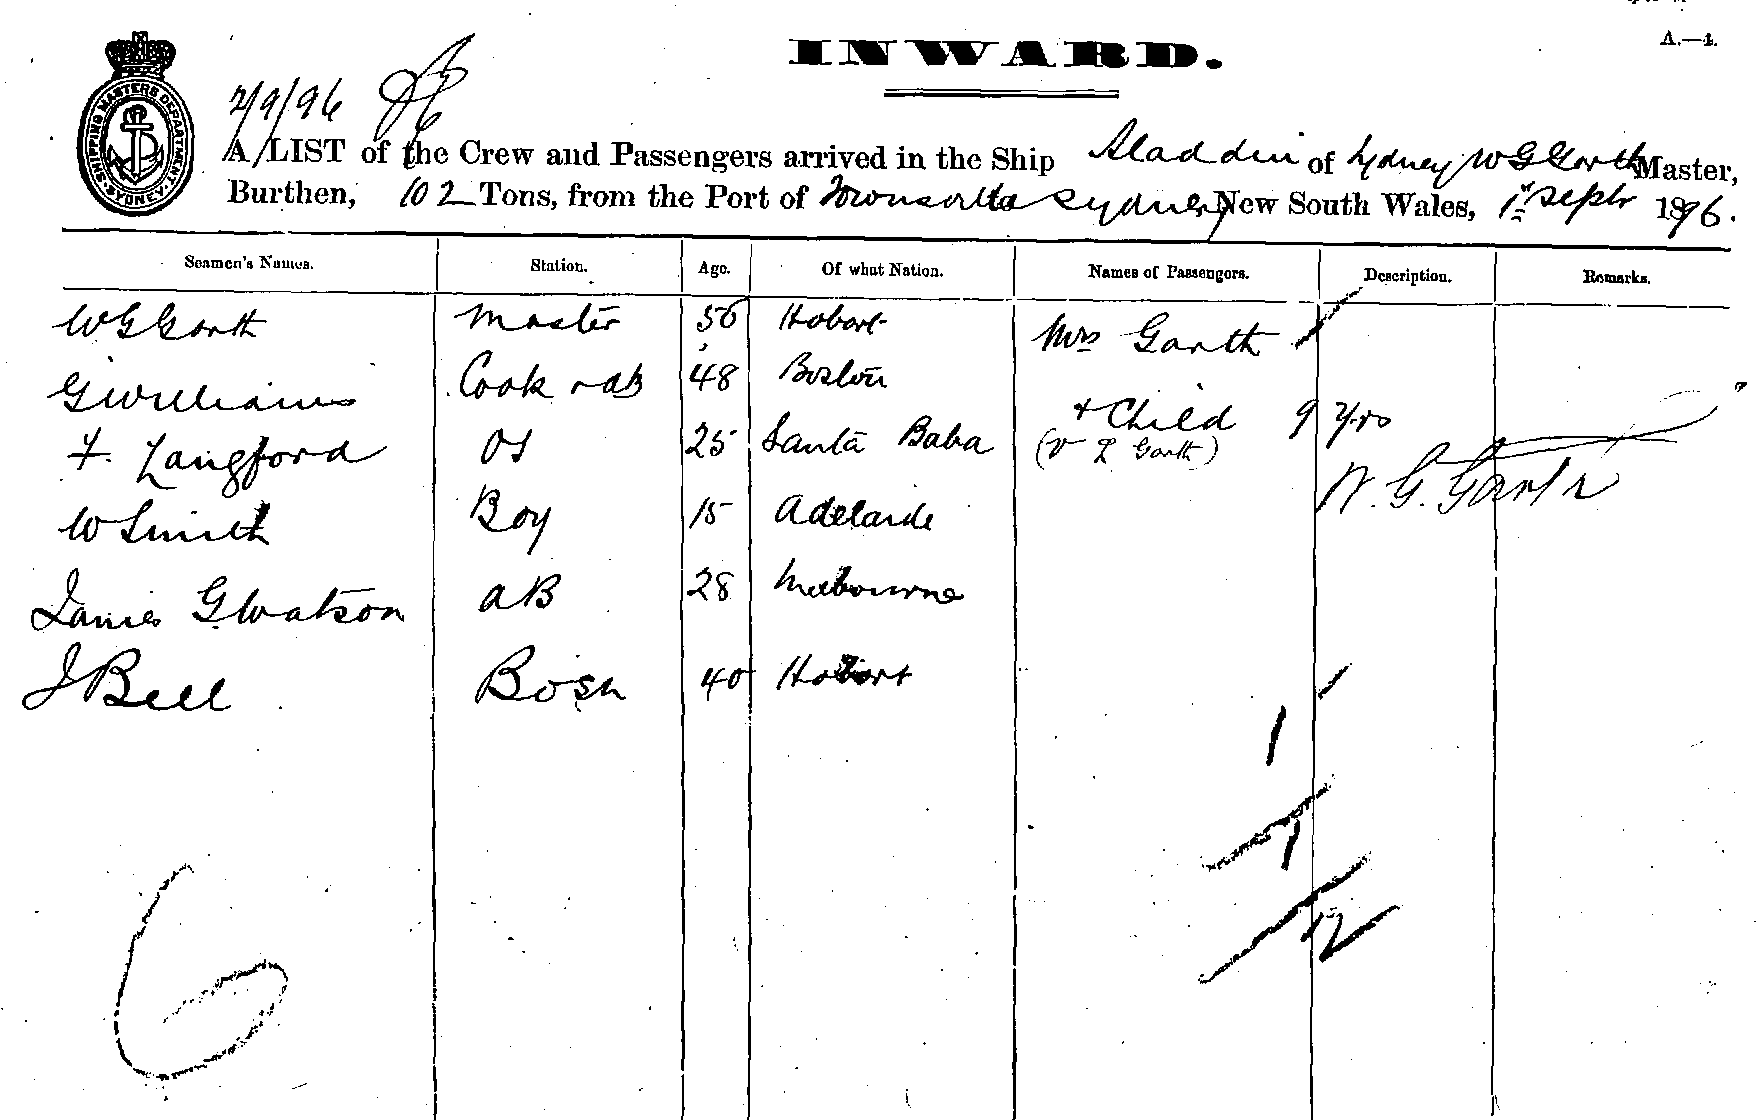 A.—4.
INWARD.
SHIPPING MASTERS DEPARTMENT
SYDNEY
2/9/96
A LIST of the Crew and Passengers arrived in the Ship Aladdin of Sydney W G Garth Master,
Burthen, 102 Tons, from the Port of Sydney New South Wales, 1st Septr 1896.
Seamen's Names. Station. Age. Of what Nation. Names of Passengers. Description. Remarks.
W G Garth Master 56 Hobart Mrs Garth
G Williams Cook & AB 48 Boston
+ Child 9 yrs
F. Langford OS 25 Santa Baba
(V L Garth)
W. G. Garth
W Smith Boy 15 Adelaide
James G Watson AB 28 Melbourne
J Bell Bosn 40 Hobart
1
1
2
6